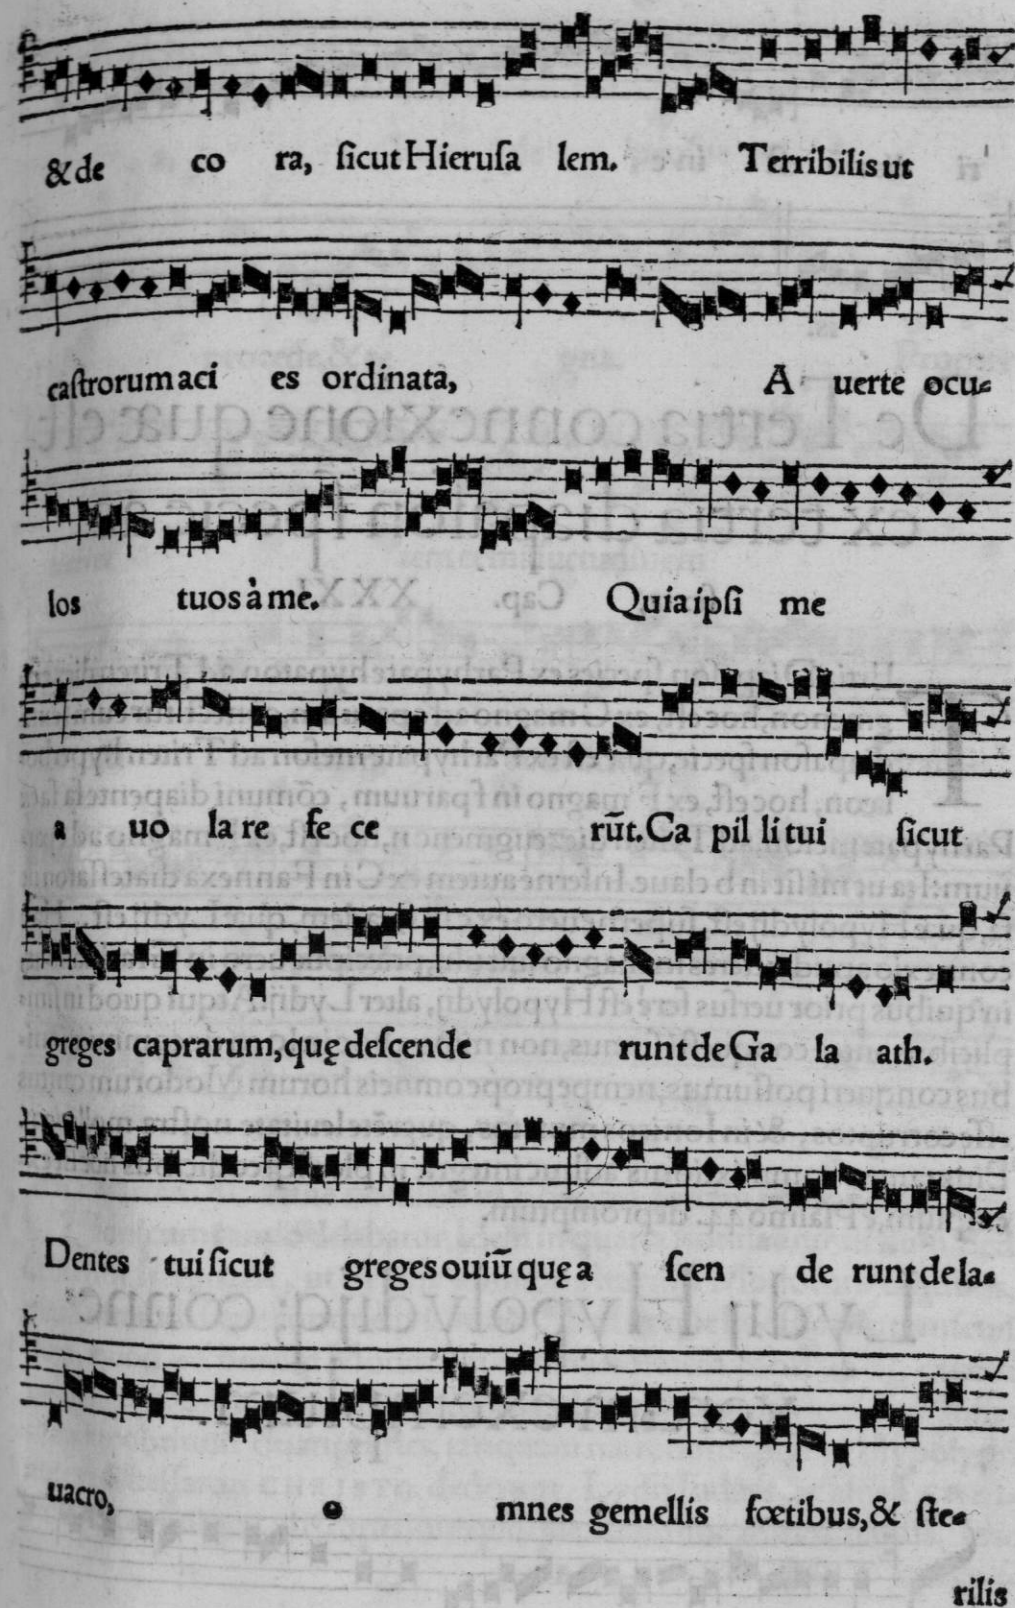 &de co ra, ſicut Hieruſa lem. Terribilis ut
caſtrorum aci es ordinata, A uerte ocu⸗
los tuos à me. Quia ipſi me
a uo la re fe ce rūt. Ca pil li tui ſicut
greges caprarum, quę deſcende runt de Ga la ath.
Dentes tui ſicut greges ouiū quę a ſcen de runt de la⸗
uacro, o mnes gemellis fœtibus, & ſte⸗
rilis